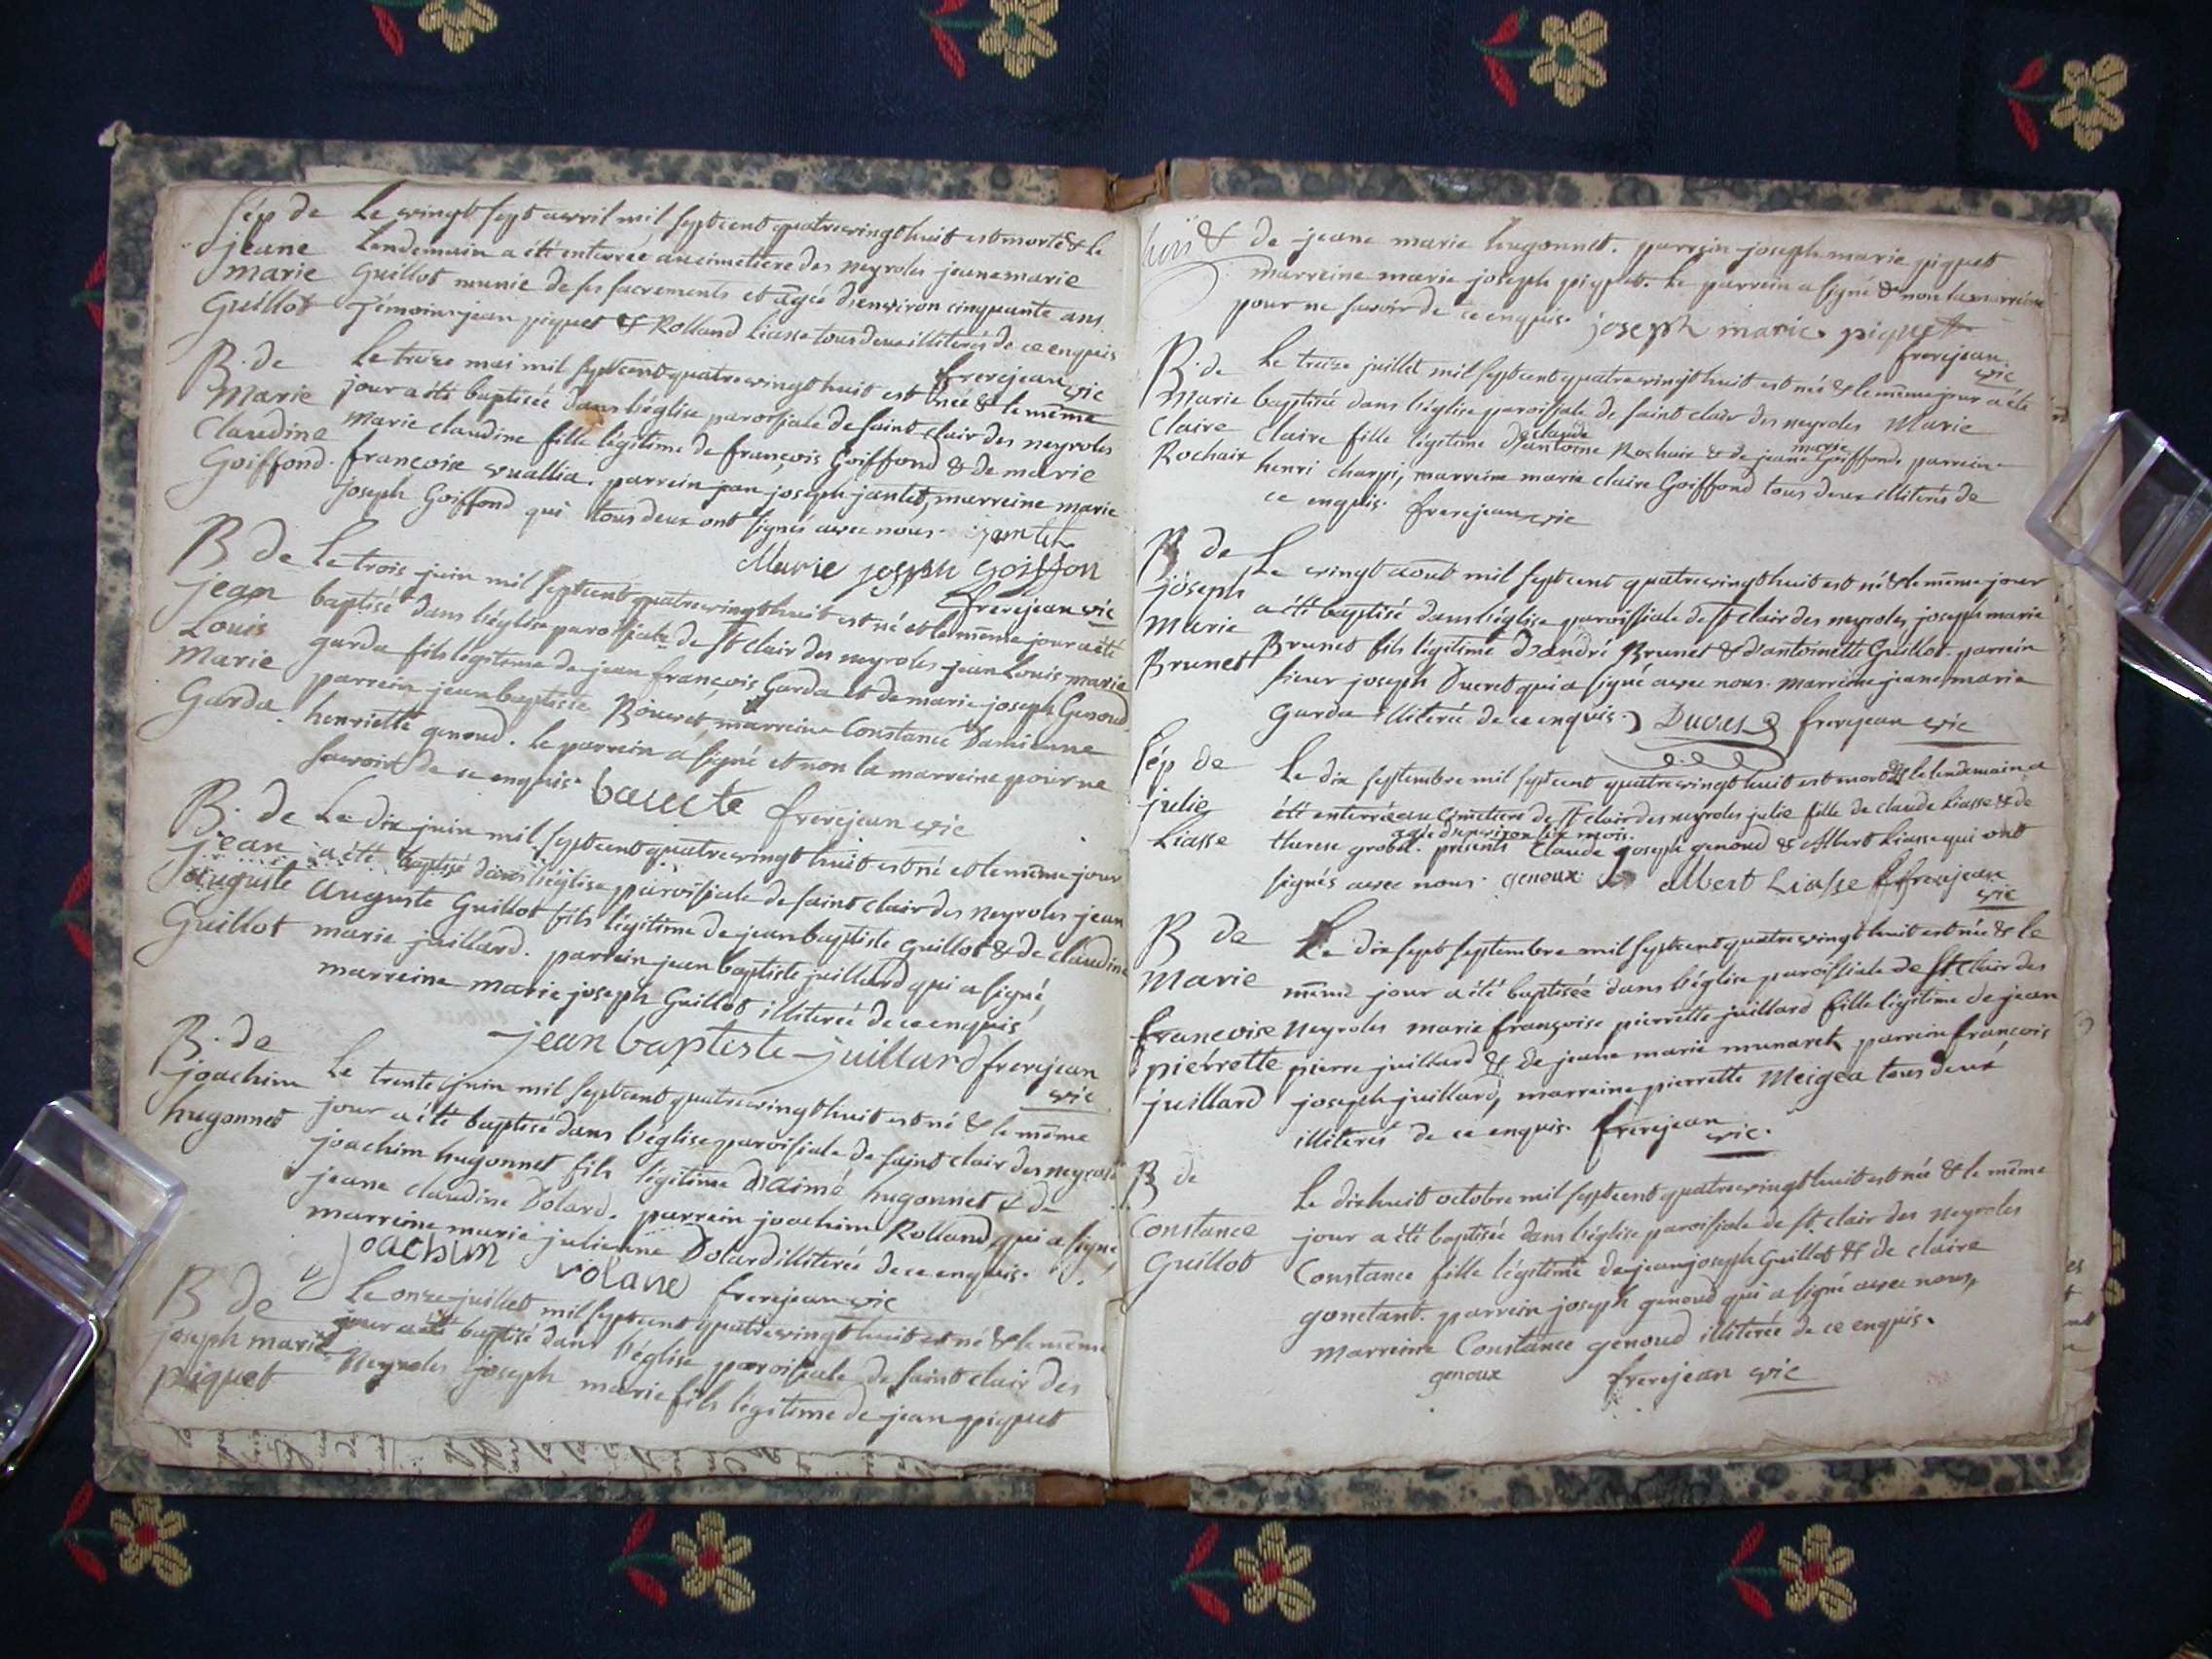 Sép de
jeane
marie
Guillot
Le vingt sept avril mil sept cent quatre vingt huit est morte & le
Lendemain a été enterrée au cimetiere des neyroles jeane marie
Guillot munie de ses sacrements et agée d'environ cinquante ans
Témoins jean piquet & Rolland Liasse tous deux illiterés de ce enquis
frerejean vic
B. de
Marie
Claudine
Goiffond.
Le treize mai mil sept cent quatre vingt huit est née & le même
jour a été baptisée dans l'église paroissiale de saint clair des neyroles
Marie claudine fille légitime de françois Goiffond & de marie
françoise vuallia. parrein jean joseph jantet, marreine marie
joseph Goiffond qui tous deux ont signés avec nous. jantet
Marie joseph Goiffon
frerejean vic
B de
jean
Louis
Marie
Garda.
Le trois juin mil sept cent quatre vingt huit est né et le même jour a été
baptisé dans l'église paroissiale de St clair des neyroles jean Louis marie
garda fils légitime de jean françois Garda et de marie joseph Genoud
parrein jean baptiste Bouvet, marreine Constance Damienne
henriette genoud. le parrein a signé et non la marreine pour ne
savoir de ce enquis. frerejean vic
B. de
jean
auguste
Guillot
Le dix juin mil sept cent quatre vingt huit est né et le même jour
a été baptisé dans l'église paroissiale de saint clair des Neyroles jean
Auguste Guillot fils légitime de jean baptiste Guillot & de claudine
marie juillard. parrein jean baptiste juillard qui a signé,
marreine marie joseph Guillot illiterée de ce enquis
jean baptiste juillard frerejean
vic
B. de
joachim
hugonnet
Le trente juin mil sept cent quatre vingt huit est né & le même
jour a été baptisé dans l'église paroissiale de saint clair des neyroles
joachim hugonnet fils légitime d'aimé hugonnet & de
jeane claudine Dolard. parrein joachim Rolland qui a signé,
marreine marie julienne Dolard illiterée de ce enquis.
joachim rolane frerejean vic
B de
joseph marie
piquet
Le onze juillet mil sept cent quatre vingt huit est né & le même
jour a été baptisé dans l'église paroissiale de saint clair des
Neyroles joseph marie fils légitime de jean piquet
& de jeane marie hugonnet. parrein joseph marie piquet
marreine marie joseph piquet. Le parrein a signé & non la marreine
pour ne savoir de ce enquis. joseph marie piquet
frerejean
vic
B. de
Marie
Claire
Rochaix
Le treize juillet mil sept cent quatre vingt huit est née & le même jour a été
baptisée dans l'église paroissiale de saint clair des neyroles Marie
claude marie
Claire fille légitime d'antoine Rochaix & de jeane Goiffond. parrein
henri charpi, marreine marie claire Goiffond tous deux illiterés de
ce enquis. frerejean vic
B de
joseph
Marie
Brunet
Le vingt aout mil sept cent quatre vingt huit est né & le même jour
a été baptisé dans l'église paroissiale de St clair des neyroles joseph marie
Brunet fils légitime d'andré Brunet & d'antoinette Guillot. parrein
sieur joseph Ducret qui a signé avec nous. marreine jeane marie
Garda illiterée de ce enquis. Ducret frerejean vic
Sép de
julie
Liasse
Le dix septembre mil sept cent quatre vingt huit est morte & le lendemain a
été enterrée au cimetiere de St clair des neyroles julie fille de claude Liasse & de
agée d'environ six mois.
therese grobel. présents Claude joseph genoud & Albert Liasse qui ont
signés avec nous. genoux albert Liasse frerejean
vic
B de
Marie
francoise
pierrette
juillard
Le dix sept septembre mil sept cent quatre vingt huit est née & le
même jour a été baptisée dans l'église paroissiale de St clair des
Neyroles marie françoise pierrette juillard fille légitime de jean
pierre juillard & de jeane marie munaret parrein françois
joseph juillard, marreine pierrette Meigea tous deux
illiterés de ce enquis. frerejean
vic.
B de
Constance
Guillot
Le dix huit octobre mil sept cent quatre vingt huit est née & le même
jour a été baptisée dans l'église paroissiale de St clair des Neyroles
Constance fille légitime de jean joseph Guillot & de claire
gonetant. parrein joseph genoud qui a signé avec nous,
marreine Constance genoud illiterée de ce enquis.
genoux frerejean vic